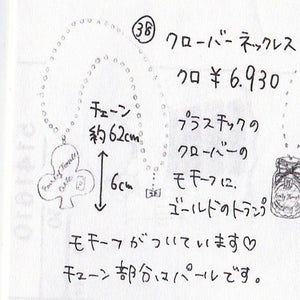 ㊳ クローバーネックレス
クロ ¥6.930
チェーン
約62cm
6cm
プラスチックの
クローバーの
モチーフに、
ゴールドのトランプ
モチーフがついています♡
チェーン部分はパールです。